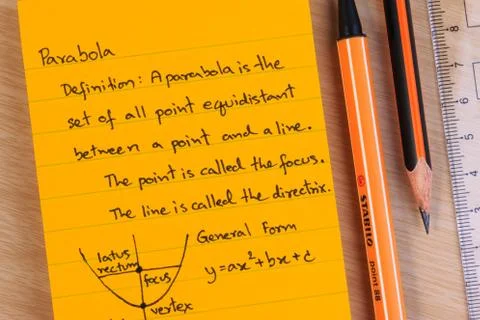 Parabola
Definition: A parabola is the
set of all point equidistant
between a point and a line.
The point is called the focus.
The line is called the directrix.
General Form
y=ax²+bx+c
latus
rectum
focus
vertex
STABILO
point 88
8
7
6
5
4
3
2